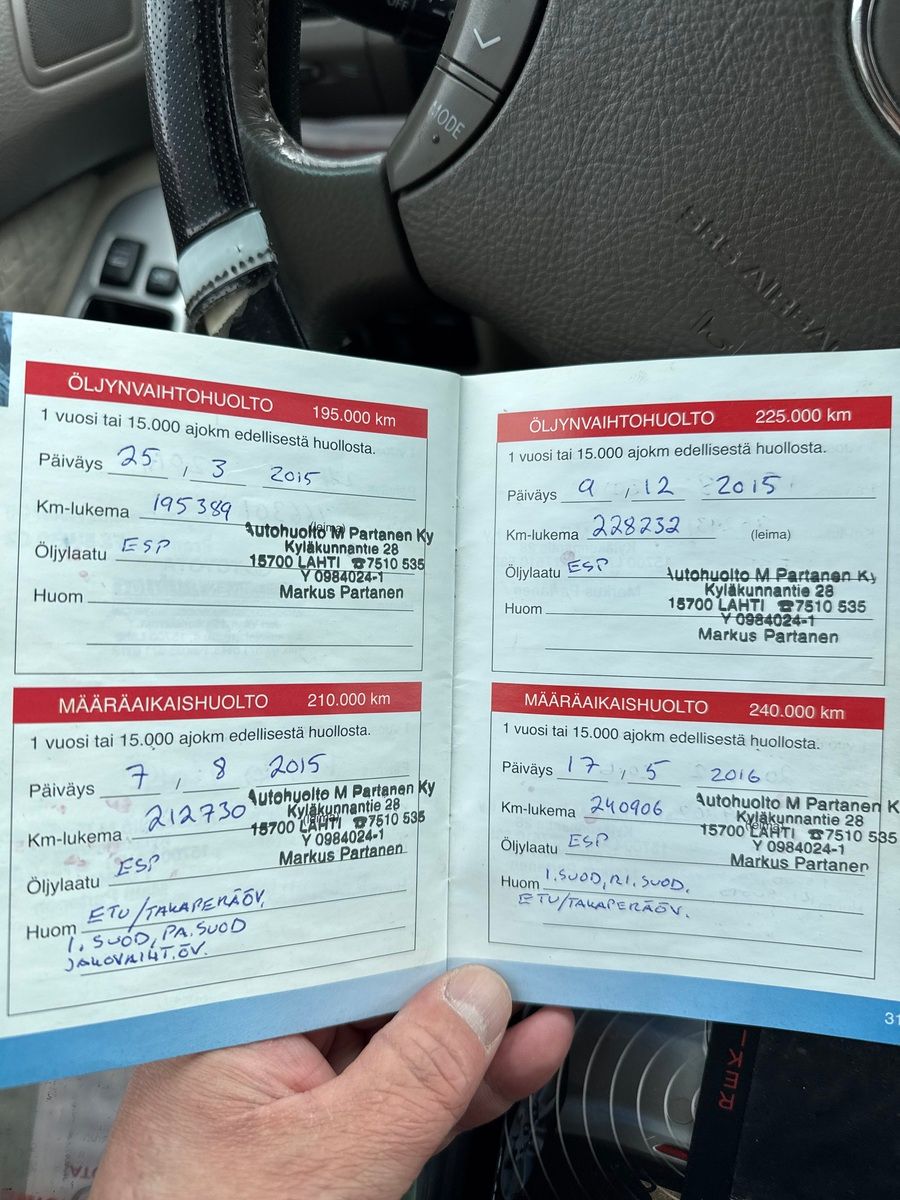 OFF
MODE
SRS AIRBAG
ÖLJYNVAIHTOHUOLTO 195.000 km
1 vuosi tai 15.000 ajokm edellisestä huollosta.
Päiväys 25 , 3 2015
Km-lukema 195389
(leima)
Öljylaatu ESP
Huom
Autohuolto M Partanen Ky
Kyläkunnantie 28
15700 LAHTI ☎7510 535
Y 0984024-1
Markus Partanen
MÄÄRÄAIKAISHUOLTO 210.000 km
1 vuosi tai 15.000 ajokm edellisestä huollosta.
Päiväys 7 , 8 2015
Km-lukema 212730
(leima)
Öljylaatu ESP
Huom ETU/TAKAPERÄÖV,
I. SUOD, PA. SUOD
JAKOVAIHT.ÖV.
Autohuolto M Partanen Ky
Kyläkunnantie 28
15700 LAHTI ☎7510 535
Y 0984024-1
Markus Partanen
ÖLJYNVAIHTOHUOLTO 225.000 km
1 vuosi tai 15.000 ajokm edellisestä huollosta.
Päiväys 9 , 12 2015
Km-lukema 228232
(leima)
Öljylaatu ESP
Huom
Autohuolto M Partanen Ky
Kyläkunnantie 28
15700 LAHTI ☎7510 535
Y 0984024-1
Markus Partanen
MÄÄRÄAIKAISHUOLTO 240.000 km
1 vuosi tai 15.000 ajokm edellisestä huollosta.
Päiväys 17 , 5 2016
Km-lukema 240906
(leima)
Öljylaatu ESP
Huom I.SUOD, RI. SUOD.
ETU/TAKAPERÄÖV.
Autohuolto M Partanen K
Kyläkunnantie 28
15700 LAHTI ☎7510 535
Y 0984024-1
Markus Partanen
31